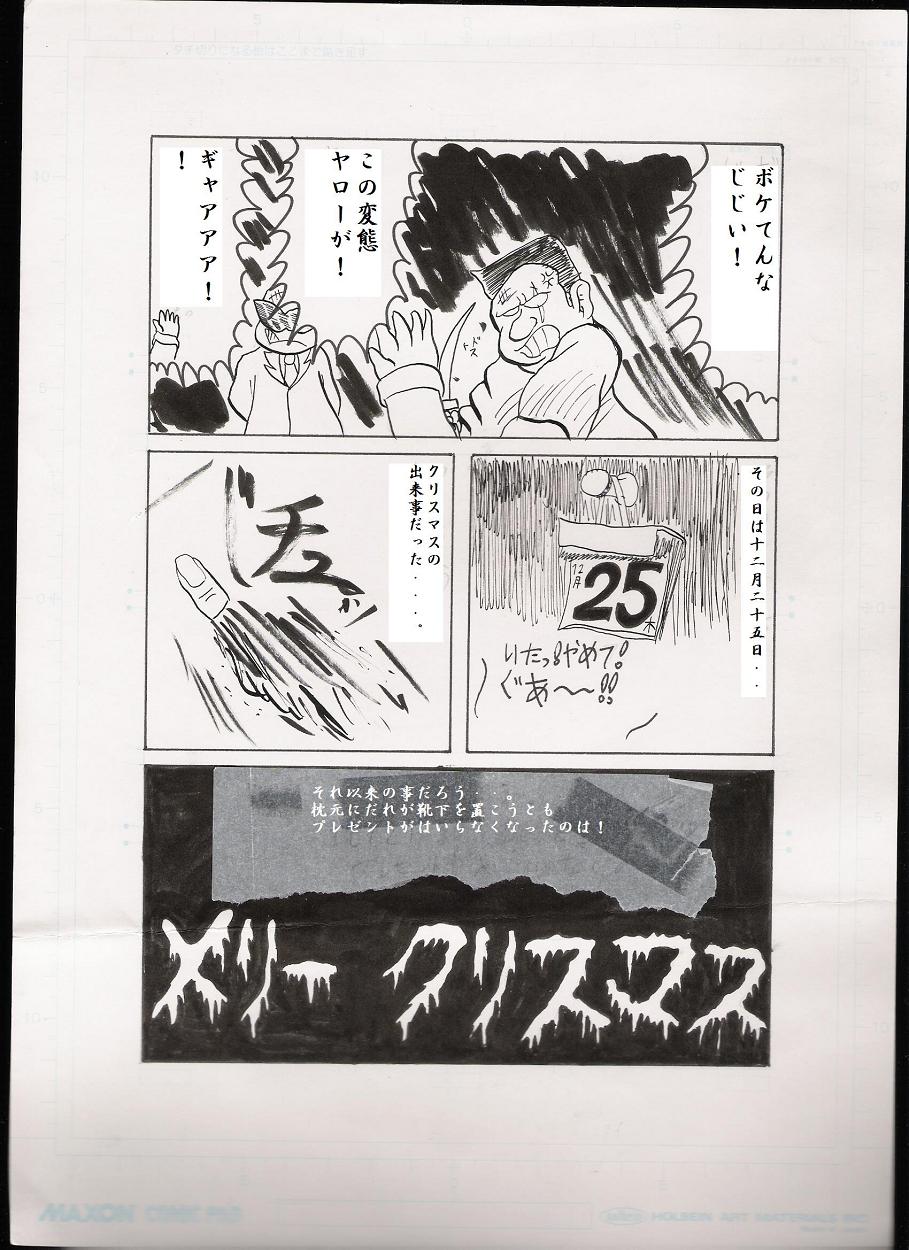 ボケてんな
じじい！
この変態
ヤローが！
ギャアアア！
！
ドス
その日は十二月二十五日．．．
12月
25
木
いたっ！やめて！
ぐあ〜〜!!
クリスマスの
出来事だった．．．。
それ以来の事だろう．．．。
枕元にだれが靴下を置こうとも
プレゼントがはいらなくなったのは！
メリー クリスマス
MAXON COMIC PAD
HOLBEIN ART MATERIALS INC